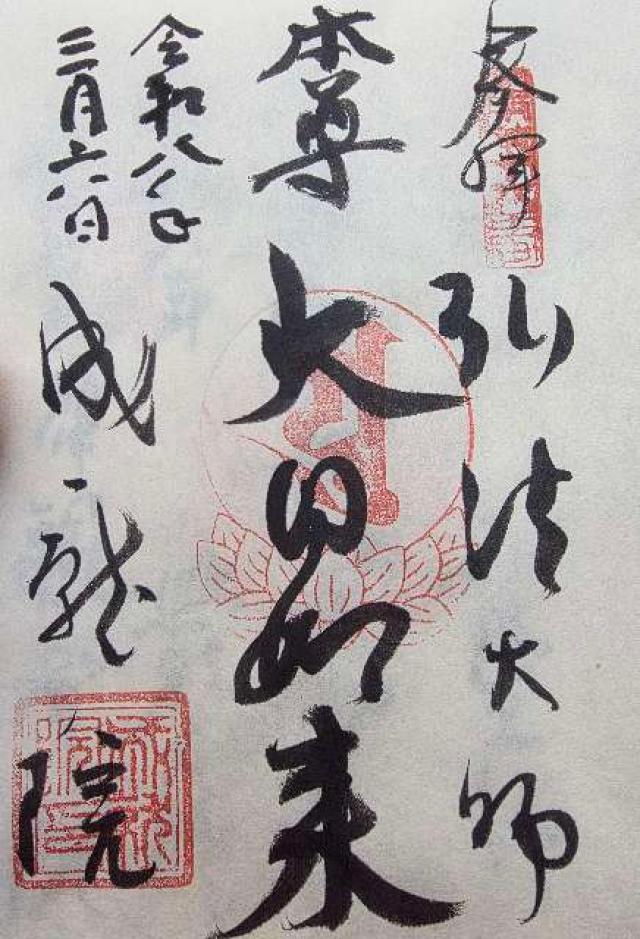 奉拝
弘法大師
本尊
大日如来
令和八年
三月六日
成就院